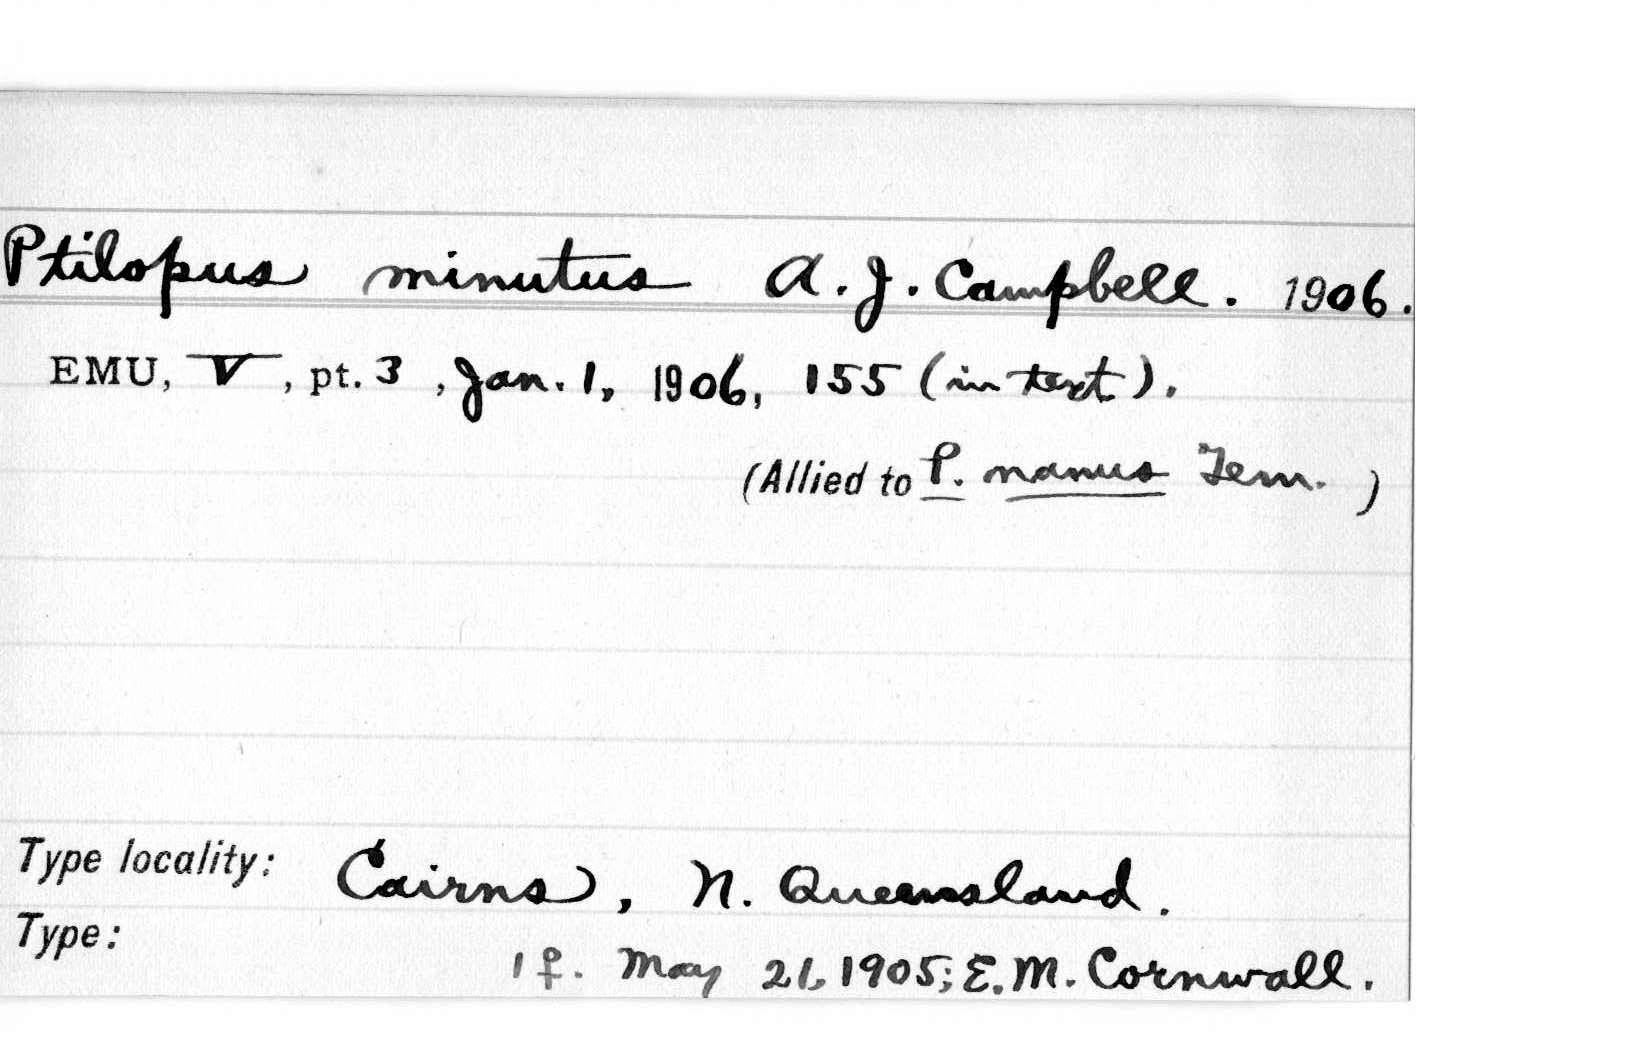 Ptilopus minutus A. J. Campbell. 1906.
EMU, V, pt. 3, Jan. 1, 1906, 155 (in text).
(Allied to P. nanus Tem. )
Type locality: Cairns, N. Queensland.
Type:
1 ♀. May 21, 1905; E. M. Cornwall.